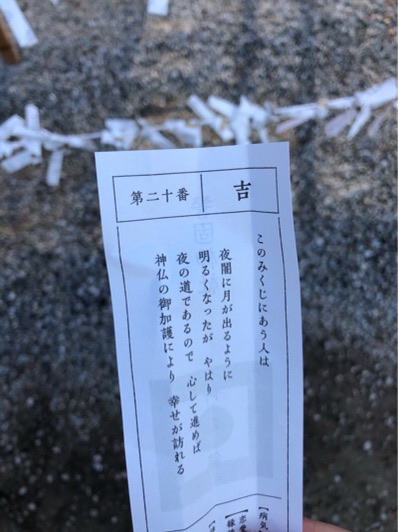 第二十番
吉
このみくじにあう人は
夜闇に月が出るように
明るくなったが　やはり
夜の道であるので　心して進めば
神仏の御加護により　幸せが訪れる